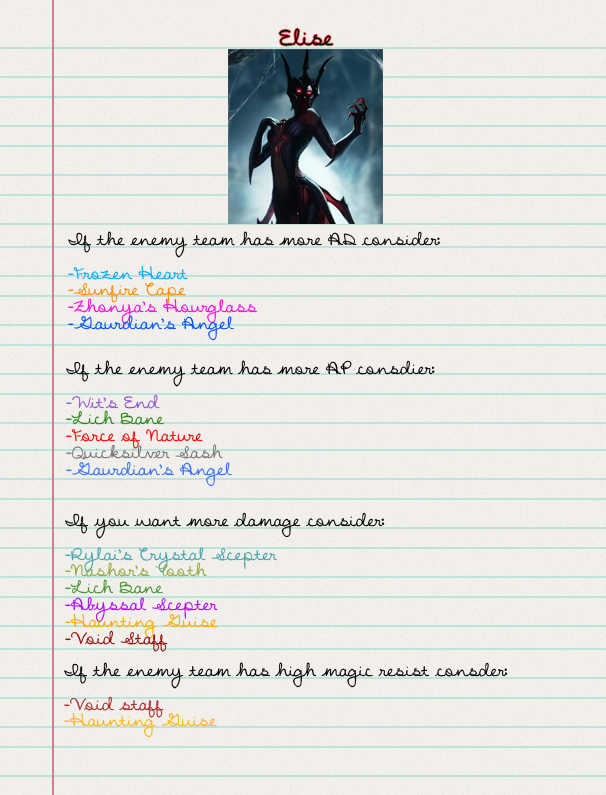 Elise
If the enemy team has more AD consider:
-Frozen Heart
-Sunfire Cape
-Zhonya's Hourglass
-Gaurdian's Angel
If the enemy team has more AP consdier:
-Wit's End
-Lich Bane
-Force of Nature
-Quicksilver Sash
-Gaurdian's Angel
If you want more damage consider:
-Rylai's Crystal Scepter
-Nashor's Tooth
-Lich Bane
-Abyssal Scepter
-Haunting Guise
-Void Staff
If the enemy team has high magic resist consder:
-Void staff
-Haunting Guise